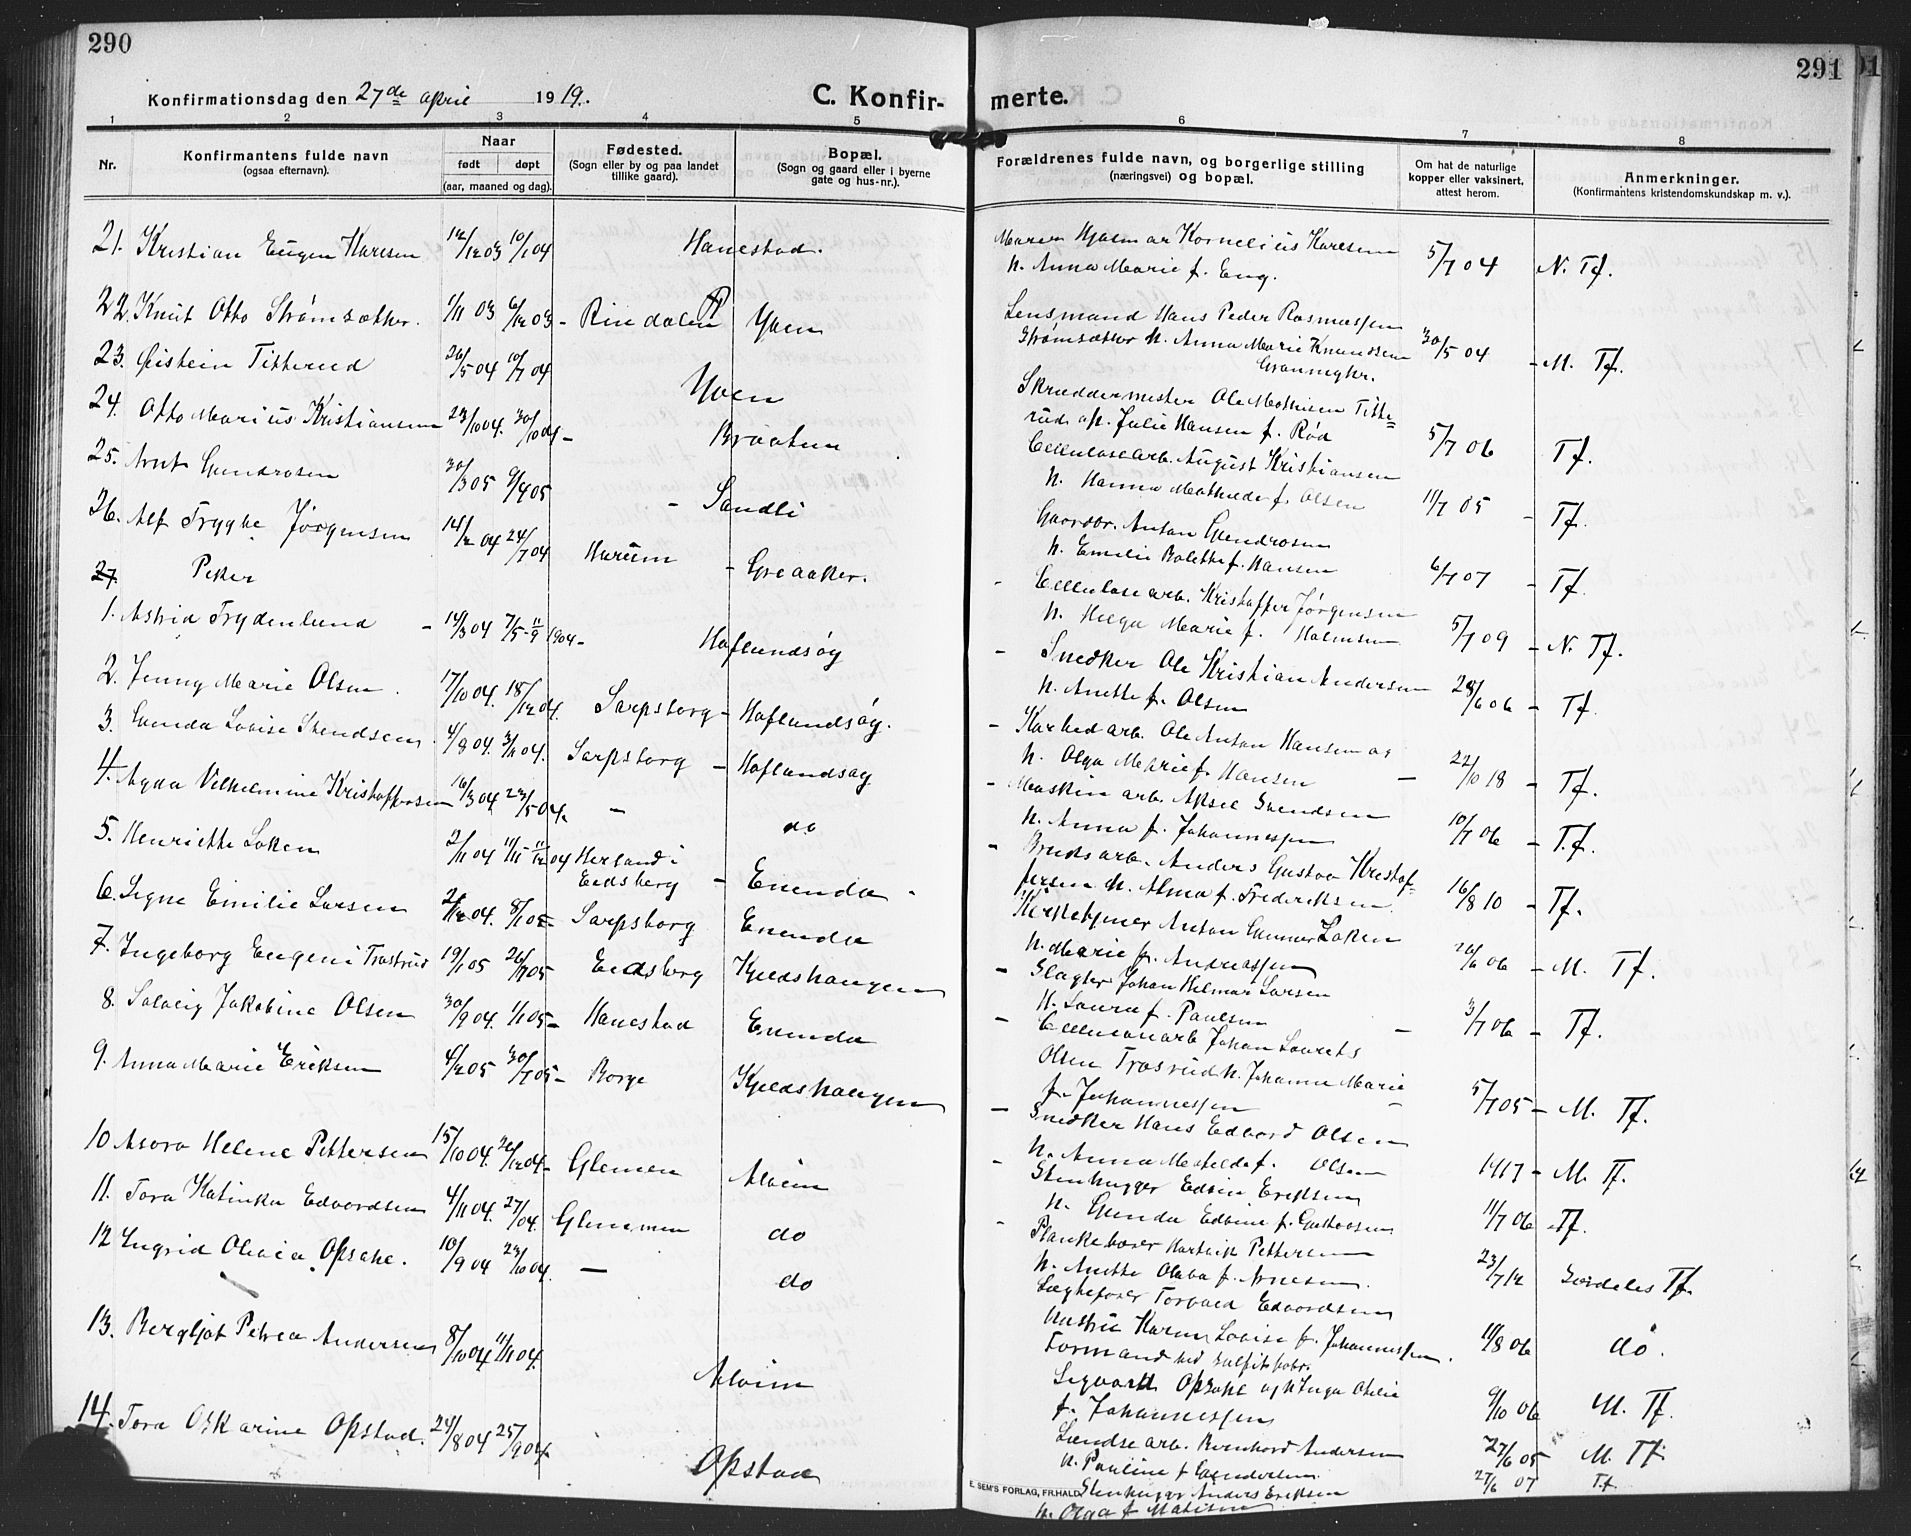 290
291
Konfirmationsdag den 27de april 1919.
C. Konfir-
merte.
1 2 3 4 5 6 7 8
Nr.
Konfirmantens fulde navn
(ogsaa efternavn).
Naar
født døpt
(aar, maaned og dag).
Fødested.
(Sogn eller by og paa landet
tillike gaard).
Bopæl.
(Sogn og gaard eller i byerne
gate og hus-nr.).
Forældrenes fulde navn, og borgerlige stilling
(næringsvei) og bopæl.
Om hat de naturlige
kopper eller vaksinert,
attest herom.
Anmerkninger.
(Konfirmantens kristendomskundskap m. v.).
21. Kristian Eugen Karlsen 12/12 03 10/1 04 Hanestad.
22. Knut Otto Strømsæther. 1/11 03 6/12 03 - Rindalen Yven
23. Øistein Titterud 26/5 04 10/7 04 Yven
24. Otto Marius Kristiansen 23/10 04. 30/10 04 - Braaten
25. Arnt Gundrosen 30/3 05 9/4 05 - Sandli
26. Alf Trygve Jørgensen 14/2 04 24/7 04 Karum - Greaaker.
27. Piker
1. Astrid Frydenlund - 14/3 04 7/5 - 11/9 1904 - Haflundsøy
2. Jenny Marie Olsen. 17/10 04. 18/12 04. Sarpsborg - Haflundsøy.
3. Gunda Lovise Svendsen. 4/8 04. 04. Sarpsborg - Haflundsøy
4. Agna Vilhelmine Kristoffersen 16/3 04 23/5 04. - do
5. Henriette Løken 2/11 04 11/11 - 11/12 04 Herland i
Eidsberg - Enenda
6. Signe Emilie Larsen 2/12 04. 8/1 05 - Sarpsborg Enenda
7. Ingeborg Eugenie Trasrud 19/1 05 26/7 05 Eidsberg Kjeldshaugen
8. Solveig Jakobine Olsen 30/9 04. 1/1 05 - Hanestad Enenda
9. Anna Marie Eriksen 4/2 05 30/7 05 - Borge Kjeldshaugen
10 Asora Helene Pettersen 15/10 04. 26/12 04 - Glemmen Alvim
11. Tora Katinka Edvardsen 4/11 04. 27/ 04. Glemmen do
12 Ingrid Olivia Opsahl. 10/9 04 23/10 04. - do
13. Bergljot Petrea Andersen 8/10 04 11/11 04. Alvim
14. Tora Oskarine Opstad. 24/8 04 25/9 04. Opstad
Murer Hjalmar Kornelius Karlsen
H. Anna Marie f. Eng. 5/7 04 N. Tf.
Lensmand Hans Peder Rasmussen
Strømsæther H. Anna Marie Knudsen
30/5 04 - M. Tf.
Skræddermester Ole Mathisen Titte=
rud o/H. Julie Hansen f. Rød 5/7 06 Tf.
Cellulosearb. August Kristiansen
H. Hanna Mathilde f. Olsen 11/7 05 - Tf.
Gaardbr. Anton Gundrosen
H. Emilie Bolette f. Hansen 6/7 07 - Tf.
- Cellulose arb. Kristoffer Jørgensen
H. Helga Marie f. Halmsen 5/7 09 - N. Tf.
- Snedker Ole Kristian Andersen
H. Anette f. Olsen 28/6 06 - Tf.
- Karbed arb. Ole Anton Hansen og
H. Olga Marie f. Hansen - 22/10 18 - Tf.
- Maskin arb. Aksel Svendsen
H. Anna f. Johannessen 10/7 06 - Tf.
- Bruksarb. Anders Gustav Kristof=
fersen H. Alma f. Frederiksen. 16/8 10 - Tf.
Kirketjener Anton Gunnar Løken
H. Marie f. Andreassen 26/6 06 - M. Tf.
- Slagter Johan Hilmar Larsen
H. Laura f. Paulsen - 3/7 06 - Tf.
- Cellulosearb Johan Laurits
Olsen Trasrud H. Johanne Marie
f. Johannessen - 5/7 05 - M. Tf.
- Snedker Hans Edvard Olsen
H. Anna Matilde f. Olsen 1917 - M. Tf.
- Stenhugger Edvin Eriksen
H. Gunda Edvine f. Gustavsen 11/7 06 - Tf.
- Plankebærer Hartvik Pettersen
H. Anette Olava f. Arnesen. 23/7 12 Særdeles Tf.
Lægtebærer Torvald Edvardsen
Hustru Karen Lovise f. Johannessen. 11/8 06 do.
Formand ved Sulfitfabr.
Sigvard Opsahl og H Inga Otilie
f. Johannessen 9/10 06 M. Tf.
Lændse arb. Bernhard Andersen
H. Pauline f Gundersen 27/6 05 M. Tf.
Stenhugger Anders Eriksen
H. Olga f. Mathisen 27/6 07 Tf.
E. SEM'S FORLAG, FR.HALD.